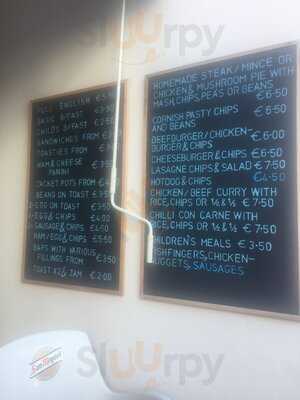 FULL ENGLISH €5.50
BASIC B/FAST
CHILDS B/FAST
SANDWICHES FROM
TOASTIES FROM
HAM & CHEESE
PANINI
JACKET POTS FROM €4
BEANS ON TOAST €3.50
EGG ON TOAST €3.50
EGG & CHIPS €4.00
SAUSAGE & CHIPS €4.50
HAM/EGG & CHIPS €4.50
BAPS WITH VARIOUS
FILLINGS FROM €3.50
TOAST X2 & JAM €2.00
HOMEMADE STEAK/MINCE OR
CHICKEN & MUSHROOM PIE WITH
MASH, CHIPS, PEAS OR BEANS
€6.50
CORNISH PASTY CHIPS
AND BEANS €6.50
BEEFBURGER/CHICKEN-
BURGER & CHIPS €6.00
CHEESEBURGER & CHIPS €6.50
LASAGNE CHIPS & SALAD €7.50
HOTDOG & CHIPS €4.50
CHICKEN/BEEF CURRY WITH
RICE, CHIPS OR ½ & ½ €7.50
CHILLI CON CARNE WITH
RICE, CHIPS OR ½ & ½ €7.50
CHILDREN'S MEALS €3.50
FISHFINGERS, CHICKEN-
NUGGETS, SAUSAGES
San Miguel
Sluurpy
Sluurpy